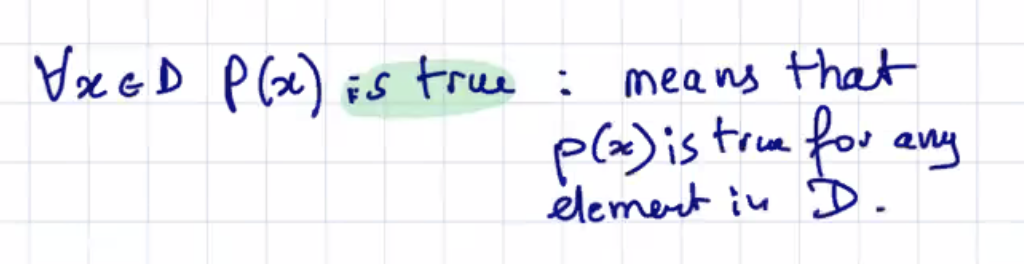 ∀x∈D P(x) is true : means that
p(x) is true for any
element in D.